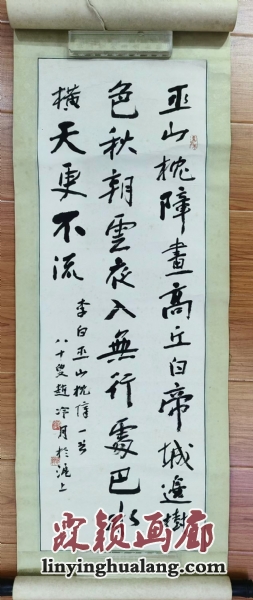 巫山枕障畫高丘白帝城邊樹
色秋朝雲夜入無行處巴水
橫天更不流
李白巫山枕障一首
八十叟趙冷月於滬上
霖颖画廊
linyinghualang.com